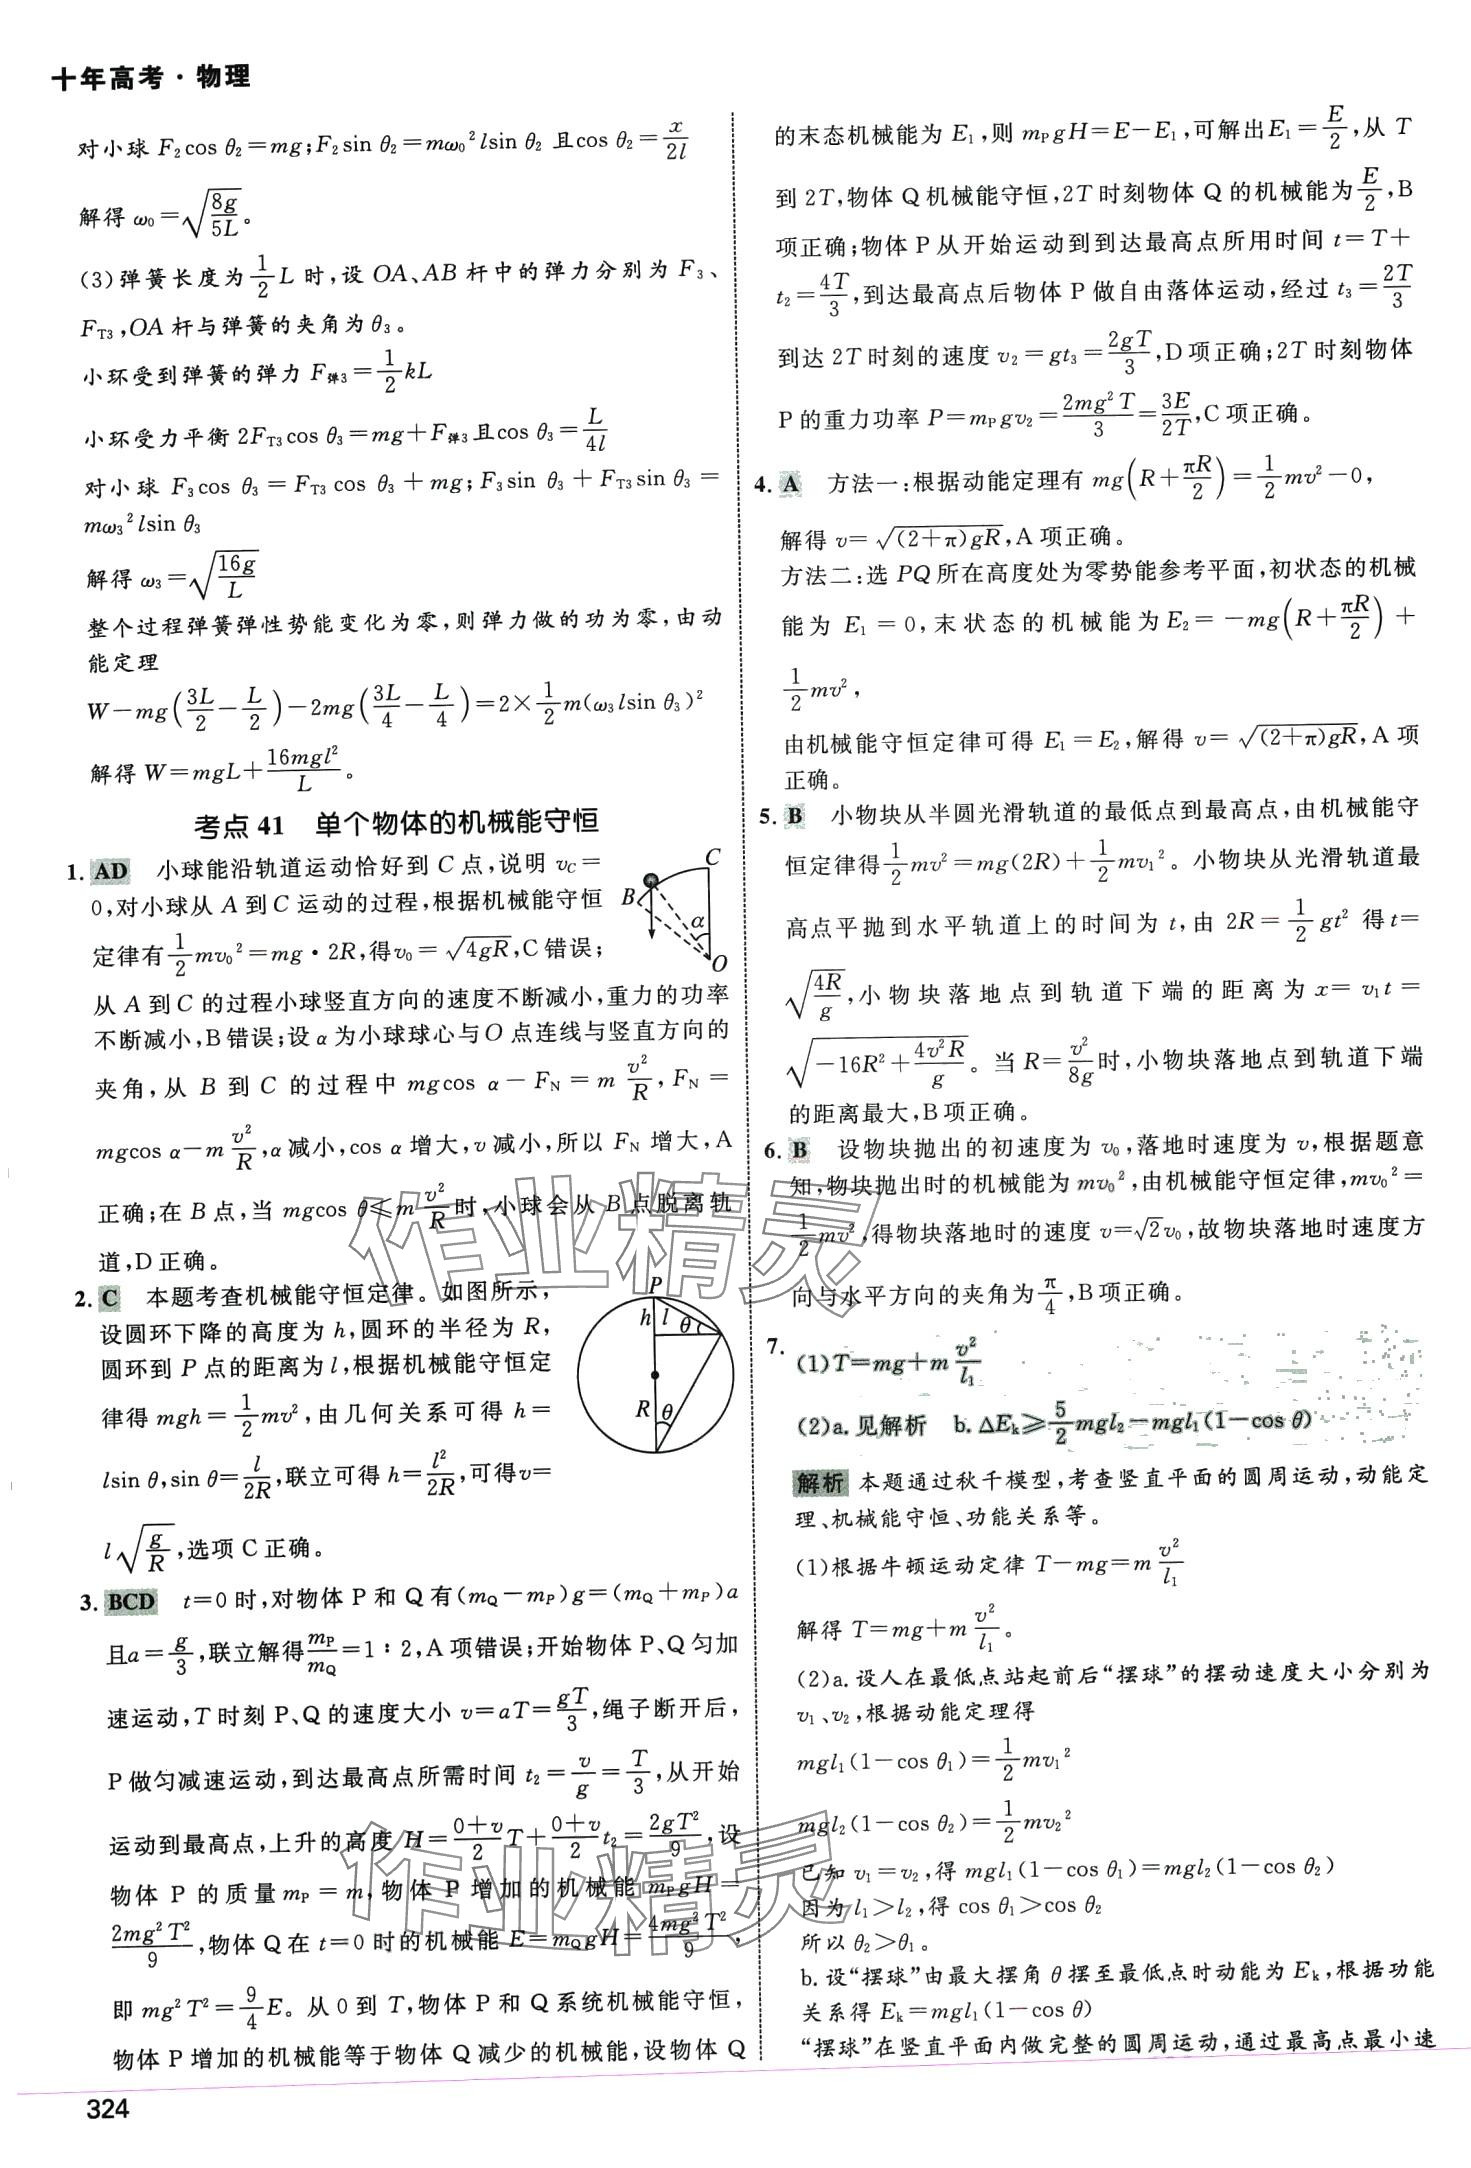 十年高考·物理
对小球 F₂cos θ₂=mg;F₂sin θ₂=mω₀²lsin θ₂ 且cos θ₂=x/2l
解得 ω₀=√(8g/5L)。
(3)弹簧长度为1/2 L 时,设 OA、AB 杆中的弹力分别为 F₃、
F_T3,OA 杆与弹簧的夹角为 θ₃。
小环受到弹簧的弹力 F弹₃=1/2 kL
小环受力平衡 2F_T3cos θ₃=mg+F弹₃且cos θ₃=L/4l
对小球 F₃cos θ₃=F_T3cos θ₃+mg;F₃sin θ₃+F_T3sin θ₃=
mω₃²lsin θ₃
解得 ω₃=√(16g/L)
整个过程弹簧弹性势能变化为零,则弹力做的功为零,由动
能定理
W-mg(3L/2-L/2)-2mg(3L/4-L/4)=2×1/2 m(ω₃lsin θ₃)²
解得 W=mgL+16mgl²/L。
考点 41 单个物体的机械能守恒
1. AD 小球能沿轨道运动恰好到 C 点,说明 v_C=
0,对小球从 A 到 C 运动的过程,根据机械能守恒
定律有1/2 mv₀²=mg·2R,得v₀=√(4gR),C 错误;
从 A 到 C 的过程小球竖直方向的速度不断减小,重力的功率
不断减小,B 错误;设 α 为小球球心与O 点连线与竖直方向的
夹角,从 B 到 C 的过程中 mgcos α-F_N=m v²/R,F_N=
mgcos α-m v²/R,α减小,cos α增大,v减小,所以 F_N 增大,A
正确;在 B 点,当 mgcos θ≤m v²/R时,小球会从 B 点脱离轨
道,D 正确。
C
B
α
O
2. C 本题考查机械能守恒定律。如图所示,
设圆环下降的高度为 h,圆环的半径为 R,
圆环到 P 点的距离为 l,根据机械能守恒定
律得 mgh=1/2 mv²,由几何关系可得 h=
lsin θ,sin θ=l/2R,联立可得 h=l²/2R,可得v=
l√(g/R),选项 C 正确。
P
h
l
θ
R
θ
3. BCD t=0 时,对物体 P 和 Q 有(m_Q-m_P)g=(m_Q+m_P)a
且a=g/3,联立解得m_P/m_Q=1∶2,A 项错误;开始物体 P、Q 匀加
速运动,T 时刻 P、Q 的速度大小 v=aT=gT/3,绳子断开后,
P 做匀减速运动,到达最高点所需时间 t₂=v/g=T/3,从开始
运动到最高点,上升的高度 H=(0+v)/2 T+(0+v)/2 t₂=2gT²/9,设
物体 P 的质量 m_P=m,物体 P 增加的机械能 m_P gH=
2mg²T²/9,物体 Q 在 t=0 时的机械能 E=m_Q gH=4mg²T²/9,
即 mg²T²=9/4 E。从 0 到 T,物体 P 和 Q 系统机械能守恒,
物体 P 增加的机械能等于物体 Q 减少的机械能,设物体 Q
的末态机械能为 E₁,则 m_P gH=E-E₁,可解出E₁=E/2,从 T
到 2T,物体 Q 机械能守恒,2T 时刻物体 Q 的机械能为E/2,B
项正确;物体 P 从开始运动到到达最高点所用时间 t=T+
t₂=4T/3,到达最高点后物体 P 做自由落体运动,经过 t₃=2T/3
到达 2T 时刻的速度 v₂=gt₃=2gT/3,D 项正确;2T 时刻物体
P 的重力功率 P=m_P gv₂=2mg²T/3=3E/2T,C 项正确。
4. A 方法一:根据动能定理有 mg(R+πR/2)=1/2 mv²-0,
解得 v=√((2+π)gR),A 项正确。
方法二:选 PQ 所在高度处为零势能参考平面,初状态的机械
能为 E₁=0,末状态的机械能为E₂=-mg(R+πR/2)+
1/2 mv²,
由机械能守恒定律可得 E₁=E₂,解得 v=√((2+π)gR),A 项
正确。
5. B 小物块从半圆光滑轨道的最低点到最高点,由机械能守
恒定律得1/2 mv²=mg(2R)+1/2 mv₁²。小物块从光滑轨道最
高点平抛到水平轨道上的时间为 t,由 2R=1/2 gt² 得 t=
√(4R/g),小物块落地点到轨道下端的距离为 x=v₁t=
√(-16R²+4v²R/g)。当 R=v²/8g时,小物块落地点到轨道下端
的距离最大,B 项正确。
6. B 设物块抛出的初速度为 v₀,落地时速度为 v,根据题意
知,物块抛出时的机械能为 mv₀²,由机械能守恒定律,mv₀²=
1/2 mv²,得物块落地时的速度 v=√2v₀,故物块落地时速度方
向与水平方向的夹角为π/4,B项正确。
7.
(1)T=mg+m v²/l₁
(2)a.见解析 b.ΔE_k≥5/2 mgl₂-mgl₁(1-cos θ)
解析 本题通过秋千模型,考查竖直平面的圆周运动,动能定
理、机械能守恒、功能关系等。
(1)根据牛顿运动定律 T-mg=m v²/l₁
解得 T=mg+m v²/l₁。
(2)a.设人在最低点站起前后“摆球”的摆动速度大小分别为
v₁、v₂,根据动能定理得
mgl₁(1-cos θ₁)=1/2 mv₁²
mgl₂(1-cos θ₂)=1/2 mv₂²
已知 v₁=v₂,得 mgl₁(1-cos θ₁)=mgl₂(1-cos θ₂)
因为 l₁>l₂,得 cos θ₁>cos θ₂
所以 θ₂>θ₁。
b.设“摆球”由最大摆角 θ 摆至最低点时动能为 E_k,根据功能
关系得 E_k=mgl₁(1-cos θ)
“摆球”在竖直平面内做完整的圆周运动,通过最高点最小速
324
作业精灵
作业精灵